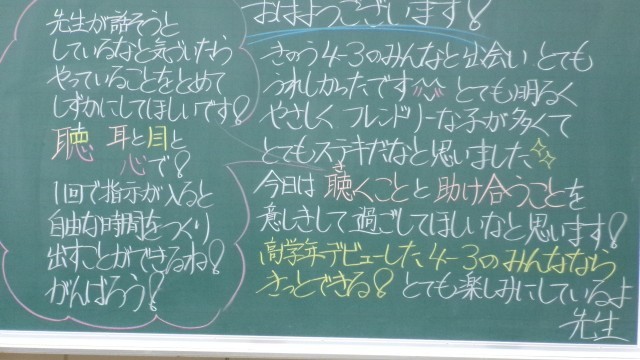 おはようございます!
きのう4-3のみんなと出会い とても
うれしかったです とても明るく
やさしく フレンドリーな子が多くて
とてもステキだなと思いました
今日は 聴くことと助け合うことを
意しきして 過ごしてほしいなと思います!
高学年デビューした 4-3のみんななら
きっとできる! とても楽しみにしているよ
先生
先生が話そうと
しているなと気づいたら
やっていることをとめて
しずかにしてほしいです!
聴 耳と目と
心で!
1回で指示が入ると
自由な時間をつくり
出すことができるね!
がんばろう!